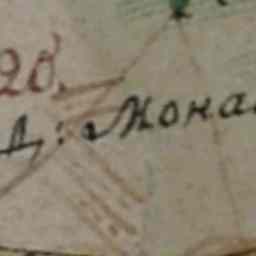 20.
Д: Мона